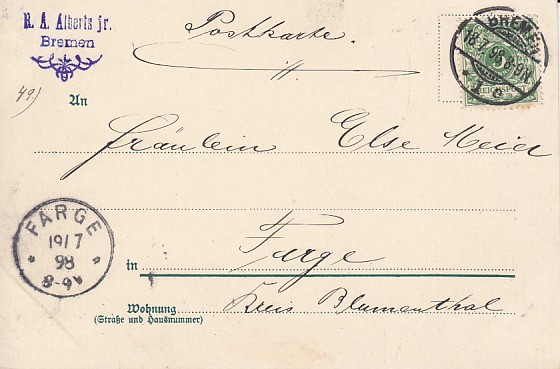 R. A. Alberts jr.
Bremen
Postkarte.
BREMEN
18.7.98.8-9N.
1
REICHSPOST
49)
An
Fräulein Else Meier
FARGE
19/7
98
8-9V
in Farge
Wohnung
(Straße und Hausnummer)
Kreis Blumenthal